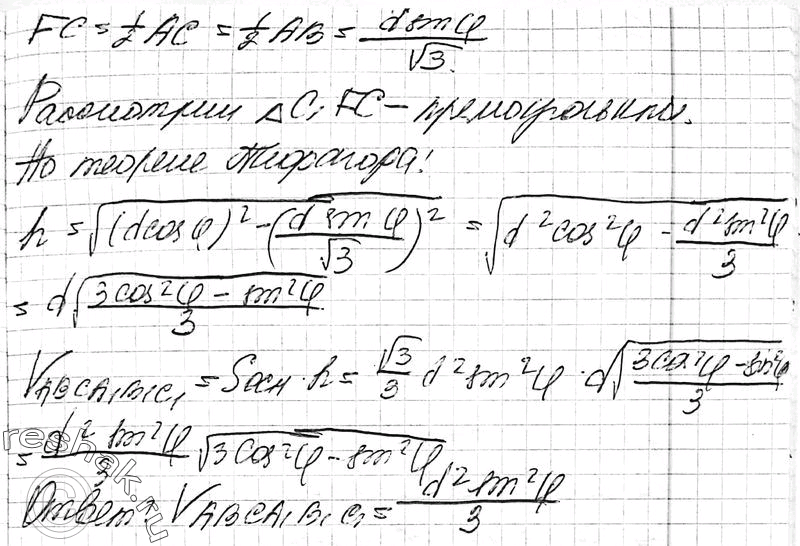 FC = 1/2 AC = 1/2 AB = d sin φ / √3.
Рассмотрим △C₁FC – прямоугольный.
По теореме Пифагора:
h = √((d cos φ)² - (d sin φ / √3)²) = √(d² cos² φ - d² sin² φ / 3)
= d√((3cos²φ - sin²φ) / 3)
V_ABCA₁B₁C₁ = Sосн · h = √3/3 d² sin² φ · d√((3cos²φ - sin²φ) / 3)
= d² sin²φ / 3 √(3cos²φ - sin²φ)
Ответ: V_ABCA₁B₁C₁ = d² sin²φ / 3
reshak.ru